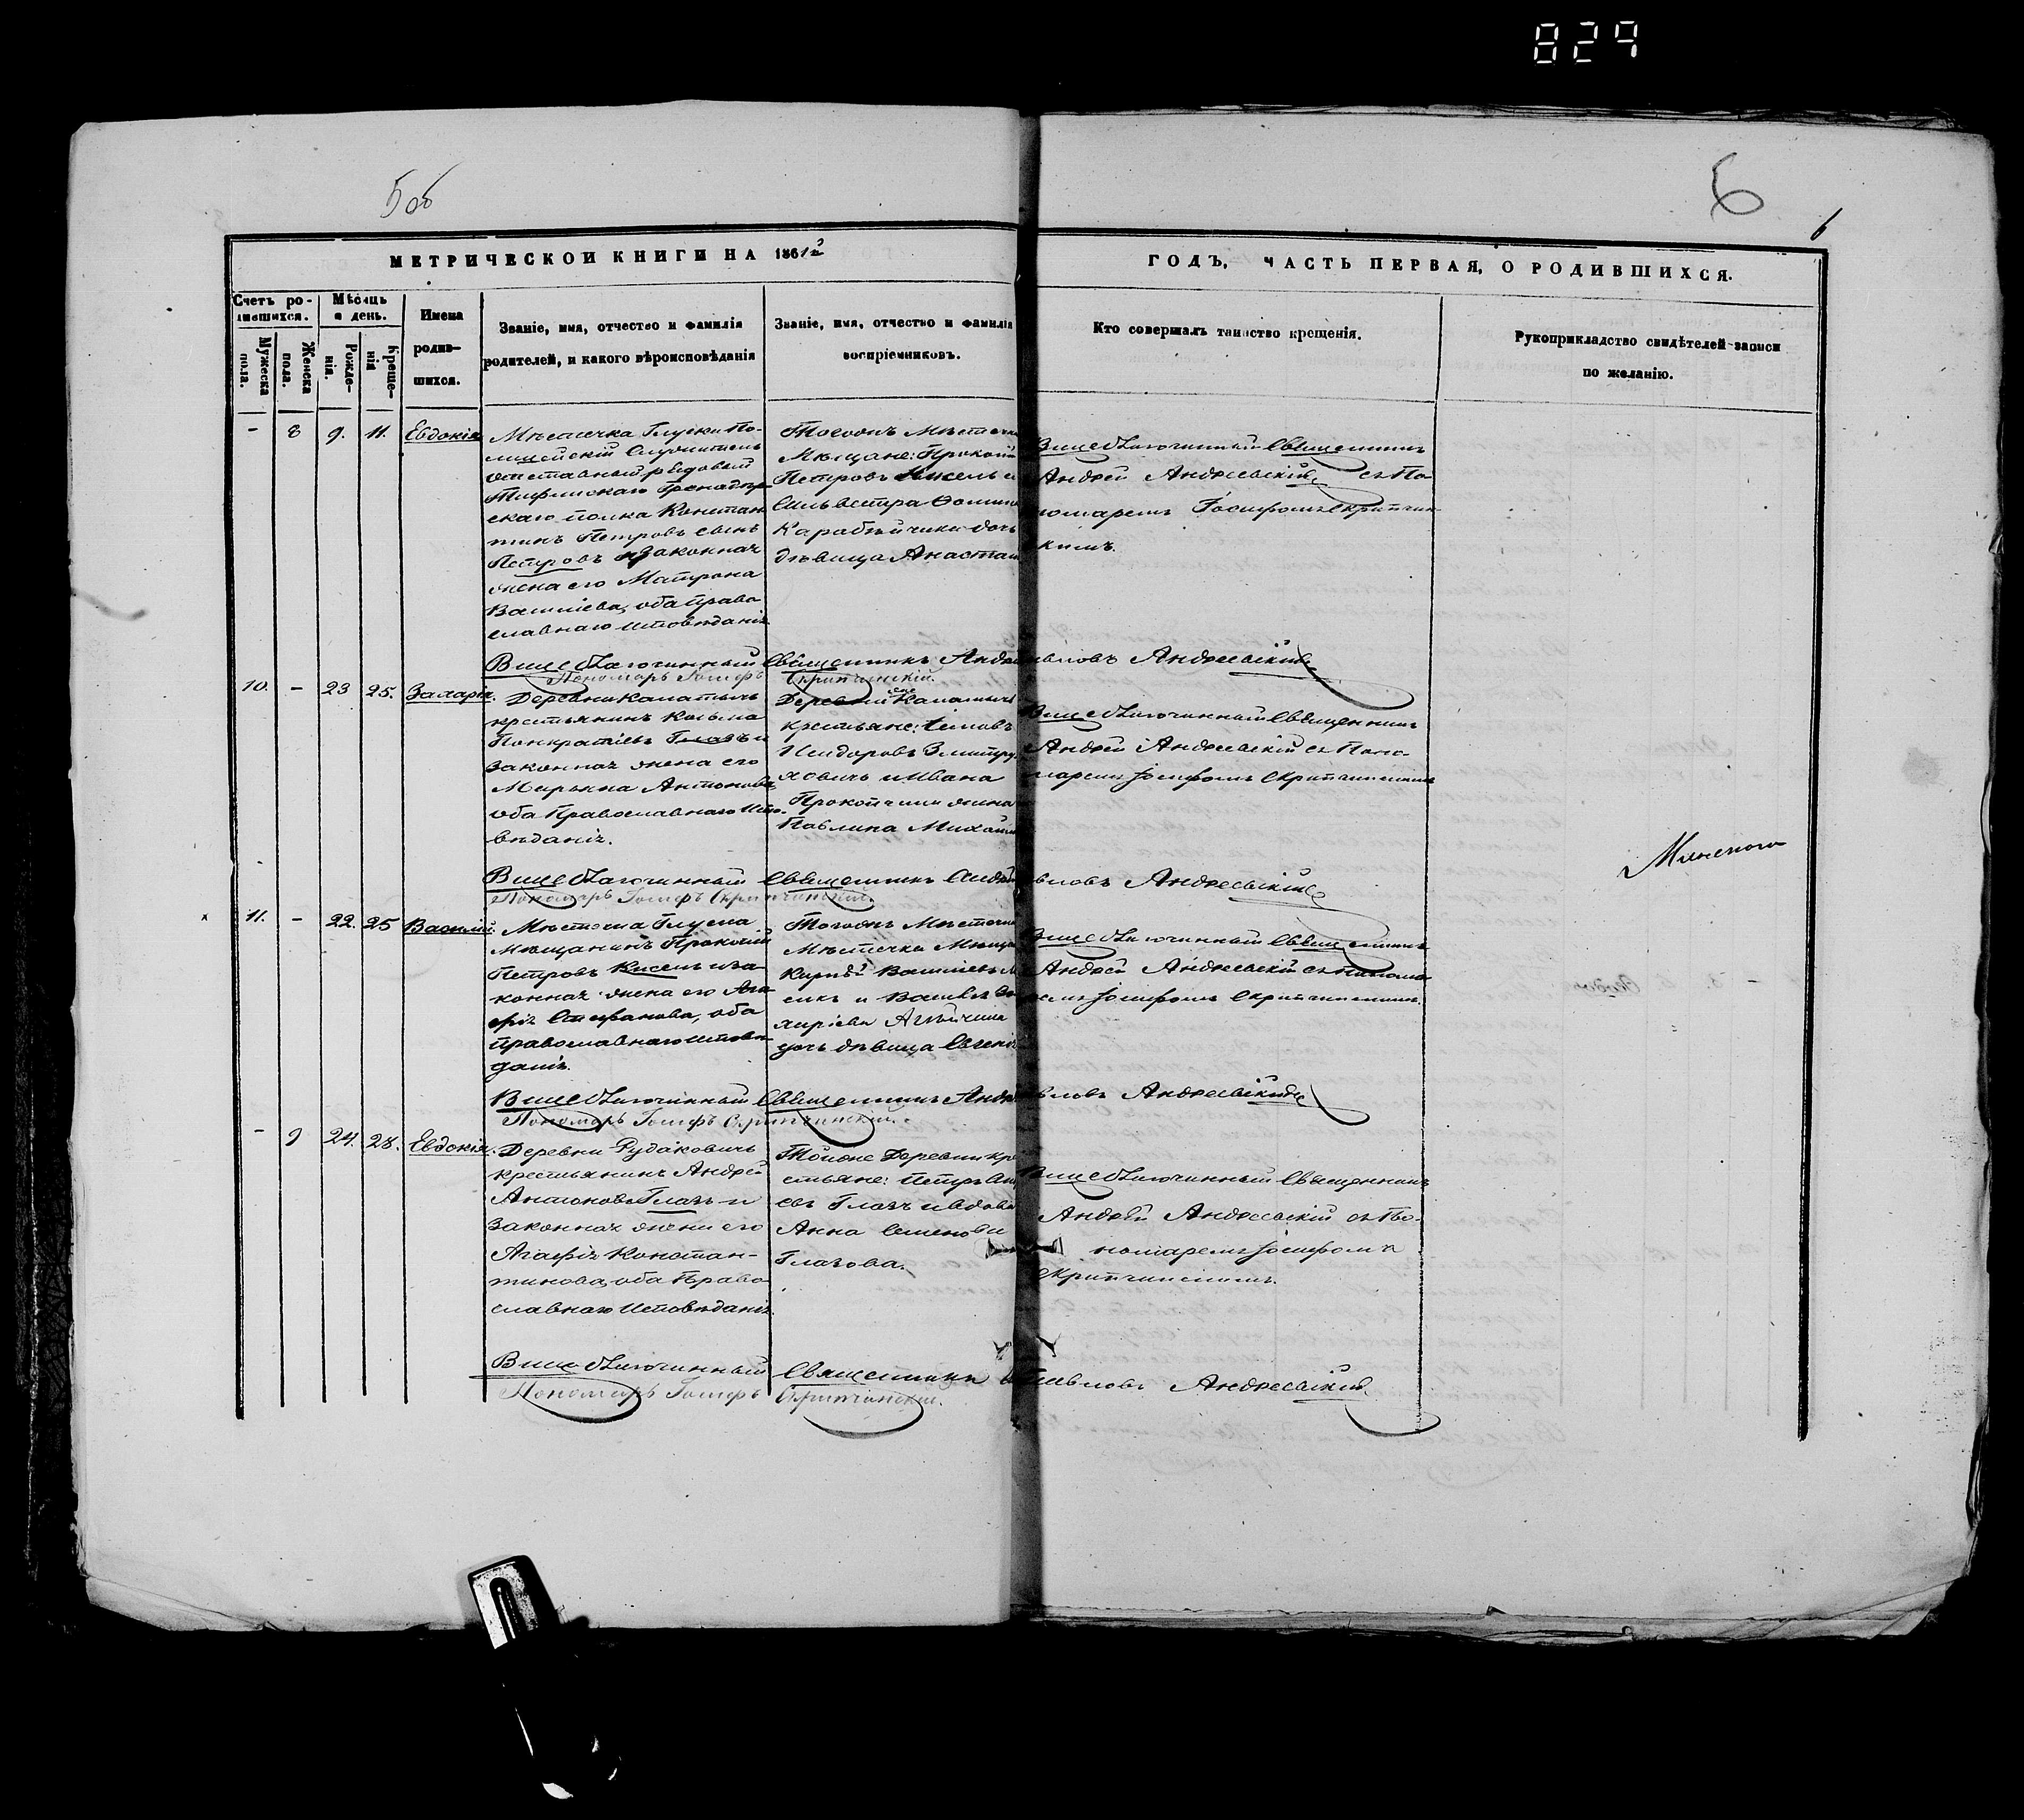 829
5 об
6
6
МЕТРИЧЕСКОЙ КНИГИ НА 1861й
ГОДЪ, ЧАСТЬ ПЕРВАЯ, О РОДИВШИХСЯ.
Счетъ родившихся.
Мужеска пола.
Женска пола.
Мѣсяцъ и день.
Рожденія.
Крещенія
Имена родившихся.
Званіе, имя, отчество и фамилія
родителей, и какого вѣроисповѣданія
Званіе, имя, отчество и фамилія
воспріемниковъ.
Кто совершалъ таинство крещенія.
Рукоприкладство свидѣтелей записи
по желанію.
- 8 9. 11. Евдокія
Мѣстечка Глуска По-
лицейскій Служитель
отставный рядовый
Тифлискаго Гренадер
скаго полка Констан
тинъ Петровъ сынъ
Петровъ и законная
жена его Матрона
Василіева, оба право
славнаго исповѣданія
Тогожъ Мѣстечка
Мѣщане: Прокопій
Петровъ Кисель и
Сильвестра Фомина
Карабѣйчика дочь
дѣвица Анастасія
Вицеблагочинный Священникъ
Андрей Андреевскій съ По
номаремъ Іосифомъ Скрипчин
скимъ.
Вицеблагочинный Священникъ Андрей Павловъ Андреевскій
Пономарь Іосифъ Скрипчинскій.
10. - 23 25. Захарія.
Деревни Калатичь
крестьянинъ Косьма
Панкратіевъ Глазъ и
законная жена его
Марьяна Антонова,
оба Православнаго Испо-
вѣданія.
Деревни Калатичь
крестьяне:
Исидоровъ Змитру
ховичь и Ивана
Прокопчика жена
Павлина Михайло
Вицеблагочинный Священникъ
Андрей Андреевскій съ Поно-
маремъ Іосифомъ Скрипчинскимъ
Минского
Вицеблагочинный Священникъ Андрей Павловъ Андреевскій
Пономарь Іосифъ Скрипчинскій.
х 11. - 22. 25 Василій.
Мѣстечка Глуска
Мѣщанинъ Прокопій
Петровъ Кисель и за-
конная жена его Ага
фія Стефанова, оба
православнаго исповѣ-
данія.
Тогожъ Мѣстечка
Мѣстечка Мѣщане
дочь дѣвица Евгенія
Вицеблагочинный Священникъ
Андрей Андреевскій съ Понома
ремъ Іосифомъ Скрипчинскимъ.
Вицеблагочинный Священникъ Андрей Павловъ Андреевскій
Пономарь Іосифъ Скрипчинскій.
- 9 24. 28. Евдокія.
Деревни Рудаковичь
крестьянинъ Андрей
Антоновъ Глазъ и
законная жена его
Агафія Констан-
тинова, оба Право
славнаго Исповѣданія.
Тойже Деревни кре
стьяне: Петръ
евъ Глазъ и вдова
Анна Семенова
Глазова.
Вицеблагочинный Священникъ
Андрей Андреевскій съ По-
номаремъ Іосифомъ
Скрипчинскимъ.
Вицеблагочинный Священникъ Павловъ Андреевскій
Пономарь Іосифъ Скрипчинскій.